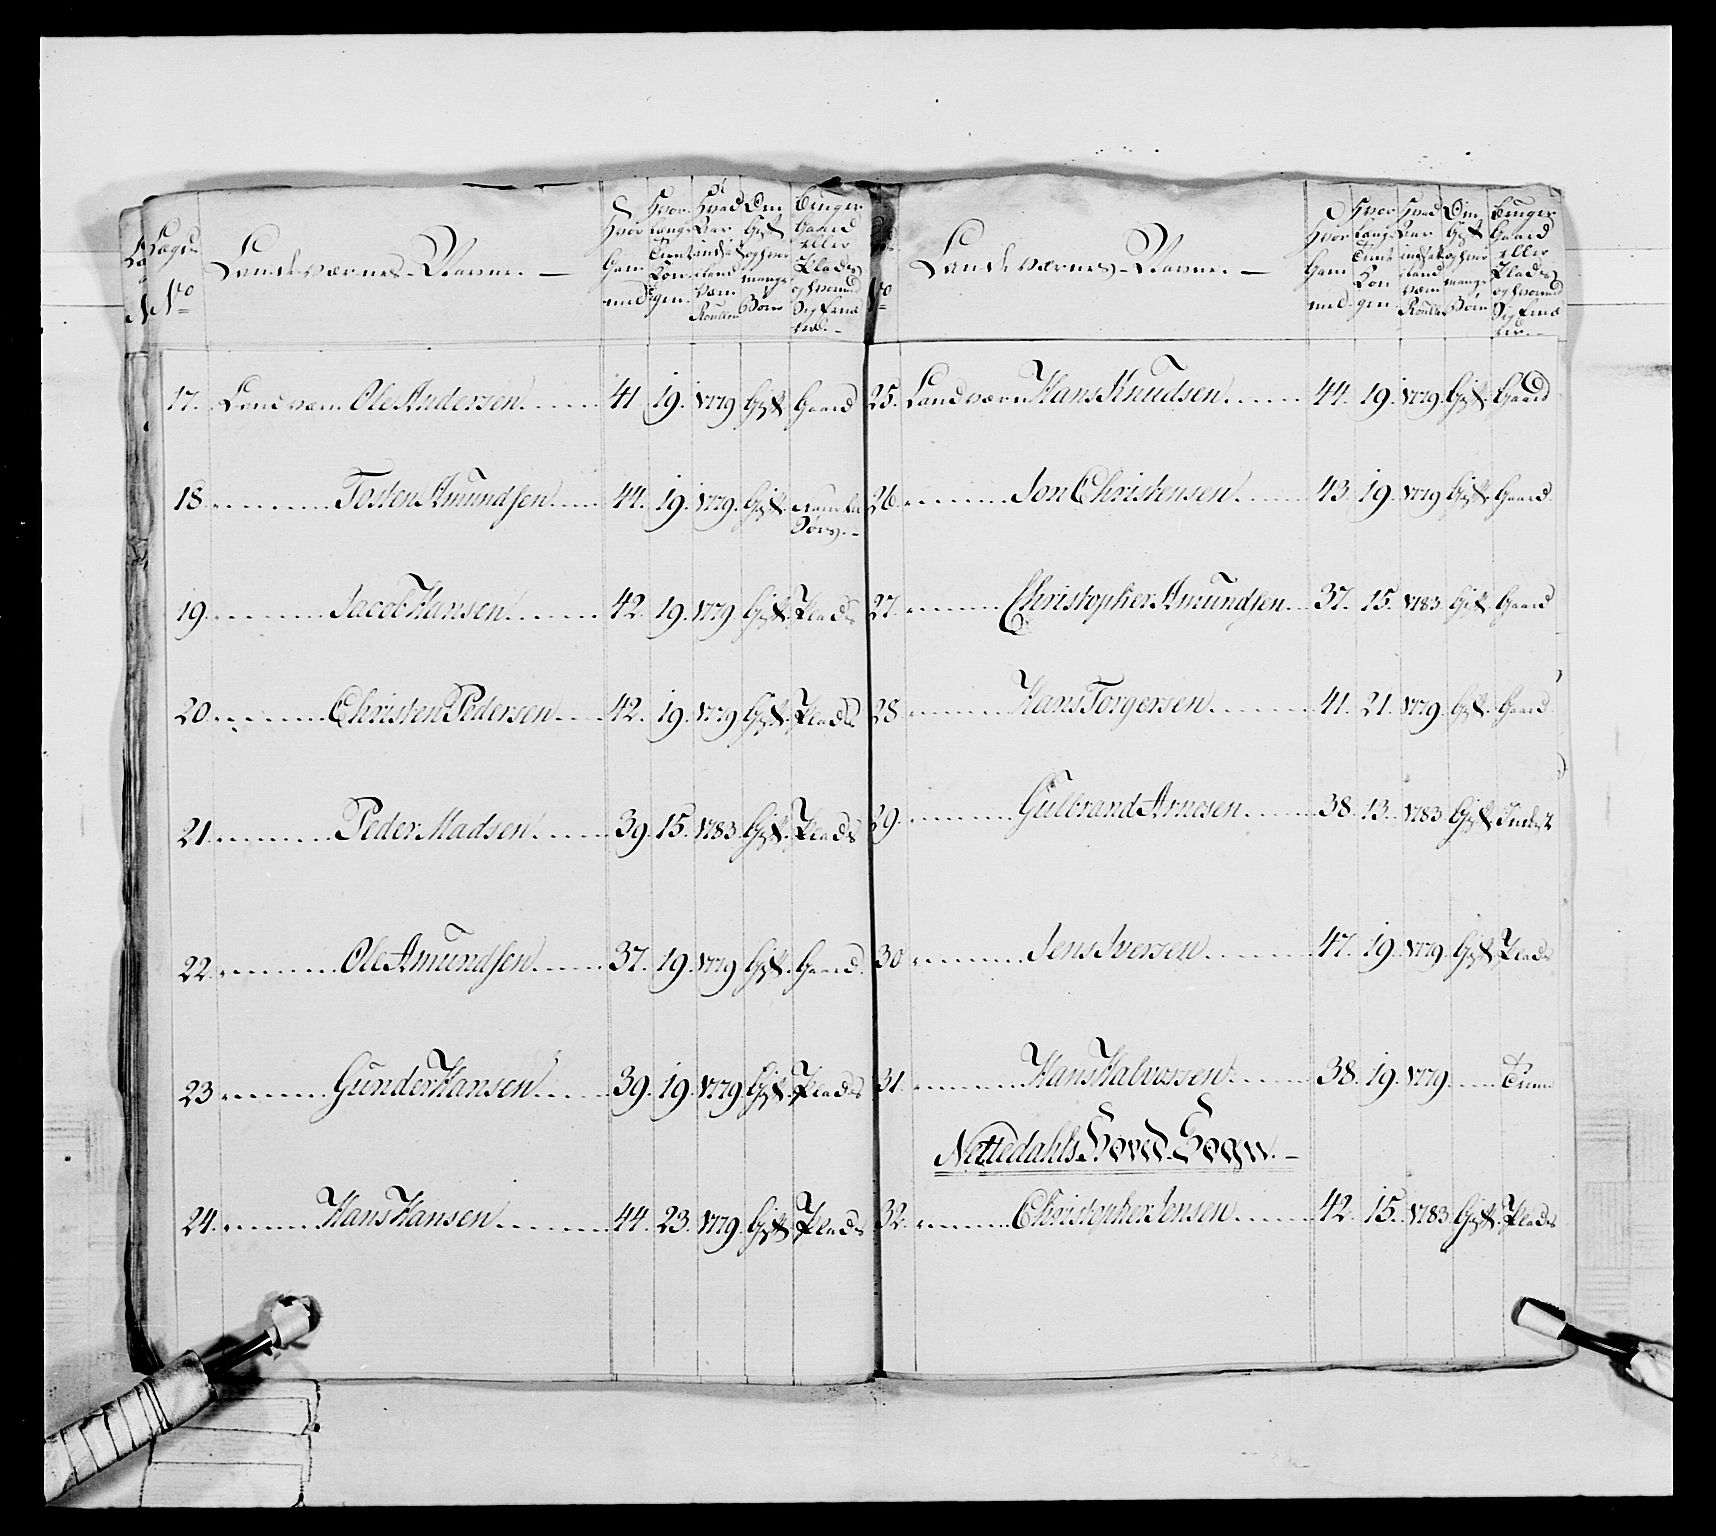 Lægd No
Landeværnes-Navne.
Hvor Gammel
Hvor Længe Tient Kongen
Hvad Aar indsat i Land værn Roullen
Om Gift og hvor mange Børn
Bruger Gaard eller Plads og hvormed Sig Ernærer
17. Landværn Ole Andersen 41 19. 1779 Gift Gaard
18 Tosten Amundsen 44. 19. 1779. Gift
19 Jacob Hansen 42. 19. 1779 Gift Plads
20 Christen Pedersen 42. 19. 1779 Gift Plads
21 Peder Madsen 39. 15. 1783 Gift Plads
22 Ole Amundsen 37. 19. 1779 Gift Gaard
23 Gunder Hansen 39. 19. 1779 Gift Plads
24. Hans Hansen 44. 23. 1779. Gift Plads
No
Landeværnes-Navne.
Hvor Gammel
Hvor Længe Tient Kongen
Hvad Aar indsat i Land værn Roulle
Om Gift og hvor mange Børn
Bruger Gaard eller Plads og hvormed Sig Ernærer
25. Landværn Hans Knudsen 44. 19. 1779. Gift Gaard
26 Jon Christensen 43. 19. 1779 Gift Gaard
27. Christopher Amundsen 37. 15. 1783. Gift Gaard
28 Hans Torgersen 41. 21. 1779. Gift Gaard
29. Gulbrand Arnesen 38. 13. 1783 Gift
30 Jens Iversen 47. 19. 1779. Gift Plads
31. Hans Halvorsen 38. 19. 1779.
Nittedahls Hoved-Sogn.
32. Christopher Jensen 42. 15. 1783 Gift Plads